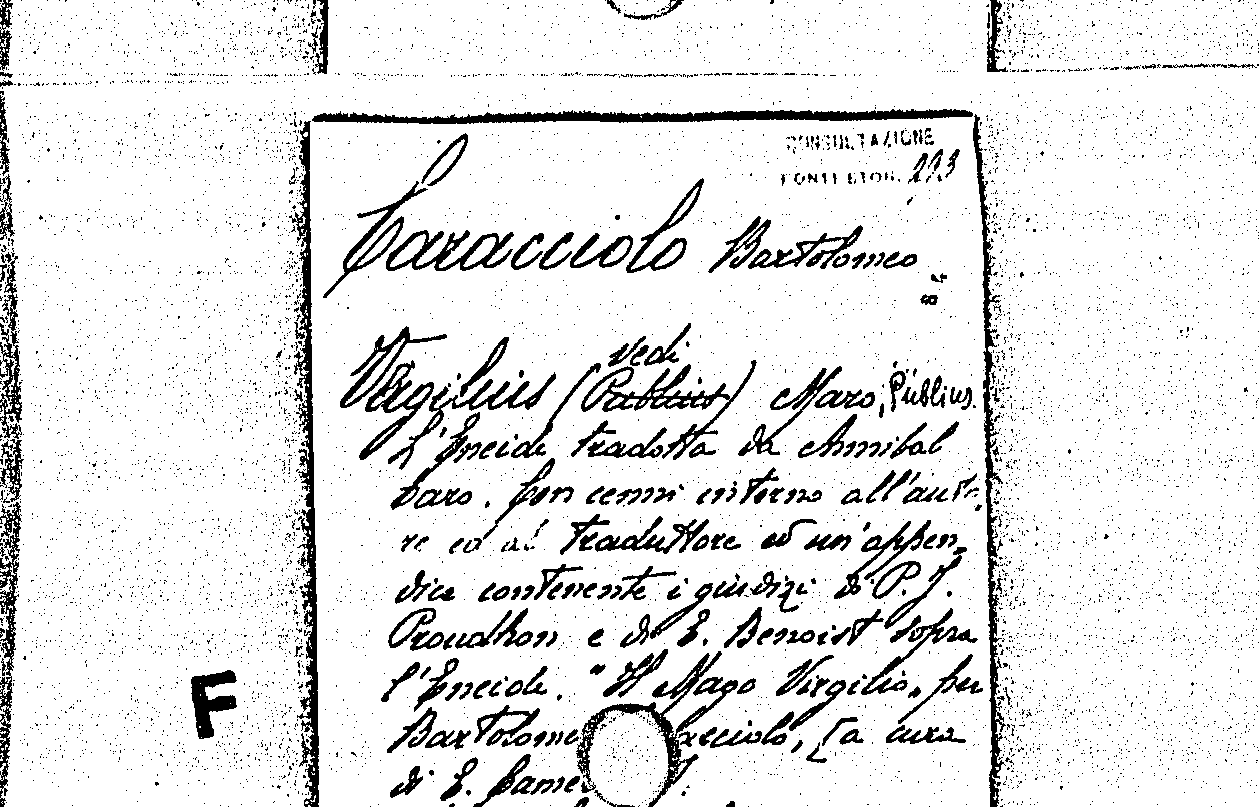 CONSULTAZIONE
FONTI STOR. 223
Caracciolo Bartolomeo
vedi
Virgilius (Publius) Maro, Publius.
L'Eneide tradotta da Annibal
Caro. Con cenni intorno all'auto-
re ed al traduttore ed un'appen-
dice contenente i giudizi di P. J.
Proudhon e di E. Benoist sopra
l'Eneide. "Il Mago Virgilio" per
Bartolome acciolo, [a cura
di E. Came
F